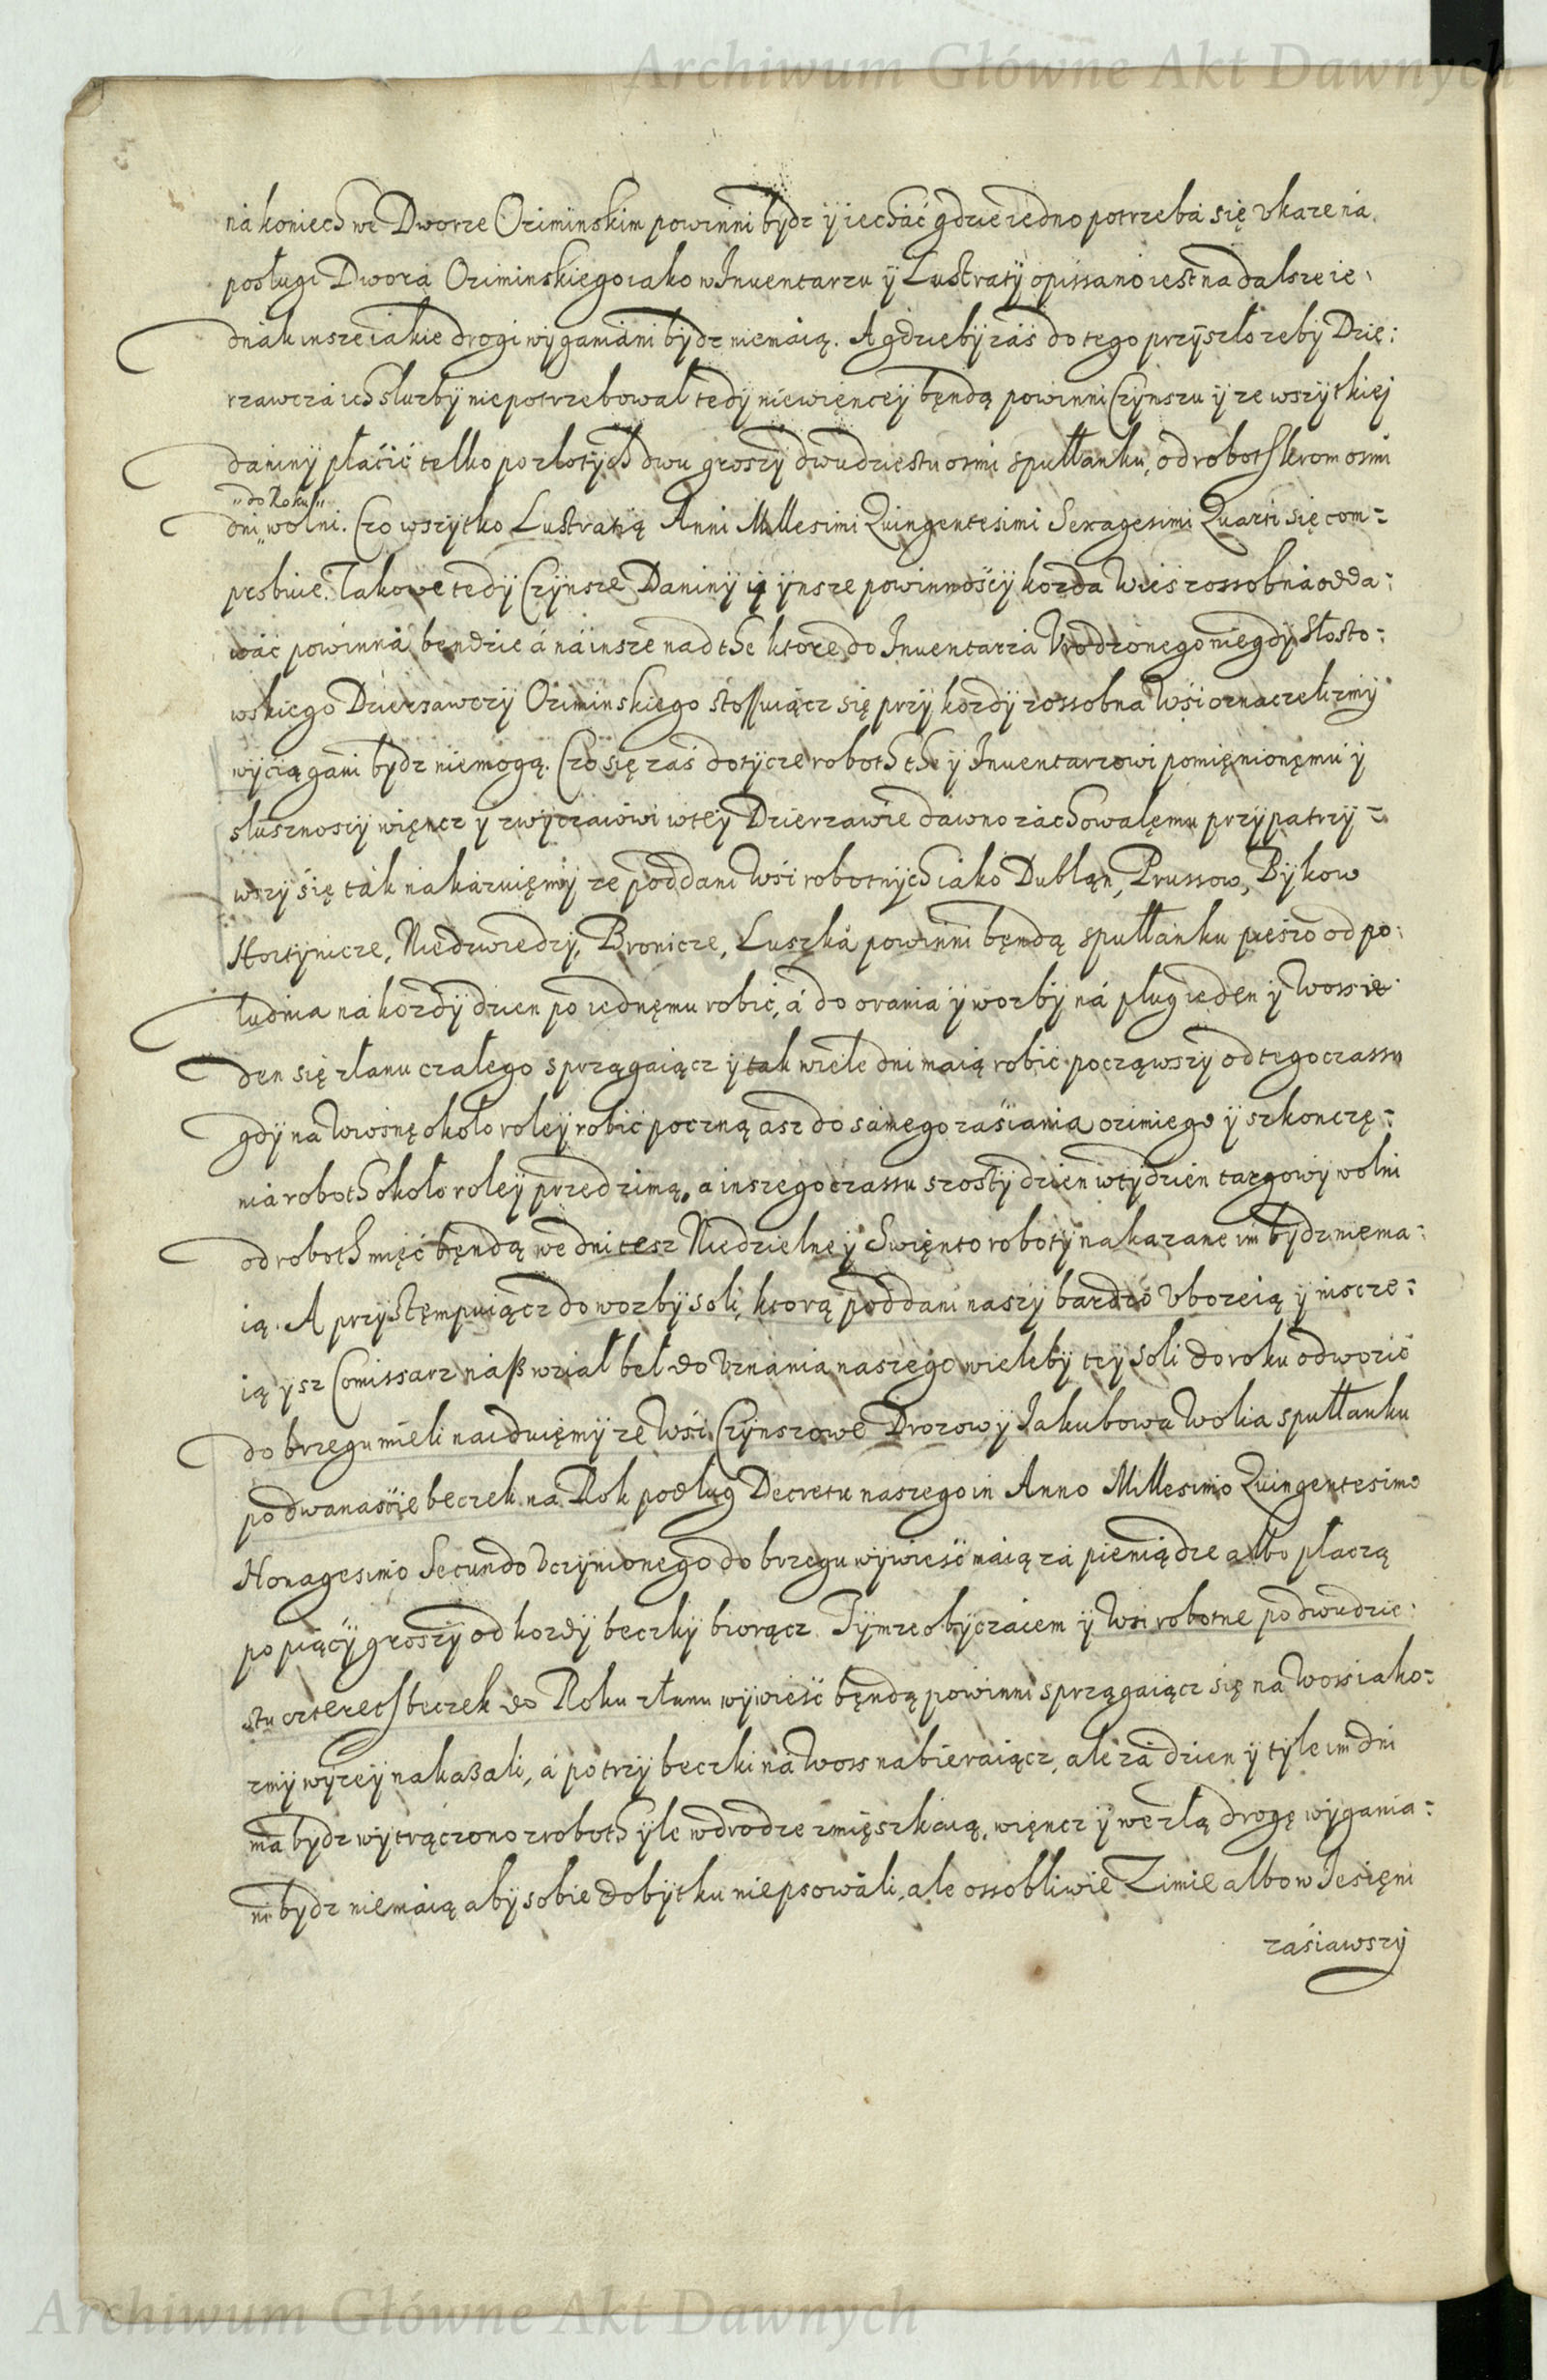 Archiwum Główne Akt Dawnych
na koniech we Dworze Oziminskim powinni bydz y iechać gdzie iedno potrzeba się vkaze na
posługi Dwora Oziminskiego iako w Inuentarzu y Lustraty opissano iest na dalsze ie,
dnak insze iakie drogi wyganiani bydz niemaią. A gdzieby zas do tego przyszło zeby Dzie:
rzawcza ich sluzby niepotrzebowal tedy niewięncey będą powinni Czynszu y ze wszytkiej
daniny płacić telko po złotych dwu groszy dwudziestu osmi s pułłanku, od roboth krom osmi
"do Roku"
dni wolni. Czo wszytko Lustratią Anni Millesimi Quingentesimi Sexagesimi Quarti się com=
probuie. Takowe tedy Czynsze Daniny y ynsze powinnoscy kozda Wies zossobna odda:
wać powinna bendzie á na insze nad the ktore do Inuentarza Vrodzonego niegdy Stosto:
wskiego Dzierzawczy Oziminskiego stossuiącz się przy kozdy zossobna Wsi oznaczelizmy
wyciągani bydz niemogą. Czo się zas dotycze roboth the y Inuentarzowi pomięnionęmu y
slusznoscy więncz y zwyczaiowi w tey Dzierzawie dawno zachowałęmu przypatrzy=
wszy się tak nakazuięmy ze poddani Wsi robotnych iako Dublan, Prussow, Bykow
Hortynicze, Niedzwiedzy, Bronicze, Luszka powinni będą s pułłanku pieszo od po:
ludnia na kozdy dzien po iednęmu robić, á do orania y wozby ná pług ieden y Woss ie
den się złanu czałego sprzągaiącz y tak wiele dni maią robic począwszy od tego czassu
gdy na Wiosnę około roley robić poczną asz do samego zasiania oziniego y szkonczę:
nia roboth około roley przed zimą, a inszego czassu szosty dzien w tydzien targowy wolni
od roboth mięć będą we dni tesz Niedzielne y Swięnto roboty nakazane im bydz niema:
ią. A przystęmpuiącz do wozby soli, ktorą poddani naszy bardzo vbozeią y niscze:
ią ysz Comissarz naß wział beł do vznania naszego wieleby tey soli do roku odwozić
do brzegu mieli naiduięmy ze Wsi Czynszowe Drozow y Jakubowa Wolia s pułłanku
po dwanascie beczek na Rok podług Decretu naszego in Anno Millesimo Quingentesimo
Nonagesimo Secundo vczynionego do brzegu wywiesć maią za pieniądze albo płaczą
po pięcy groszy od kozdy beczky biorącz. Tymze obyczaiem y Wsi robotne po dwudzie:
stu czterech beczek do Roku z łanu wywiesć będą powinni sprzągaiącz się na Woss iako=
zmy wyzey nakaßali, á po trzy beczki na Woss nabieraiącz, ale za dzien y tyle im dni
ma bydz wytrączono z roboth yle w drodze zmięszkaią, więncz y we złą drogę wygania=
ni bydz niemaią aby sobie dobytku niepsowáli, ale ossobliwie Zimie albo w Jesięni
zasiawszy
Archiwum Główne Akt Dawnych